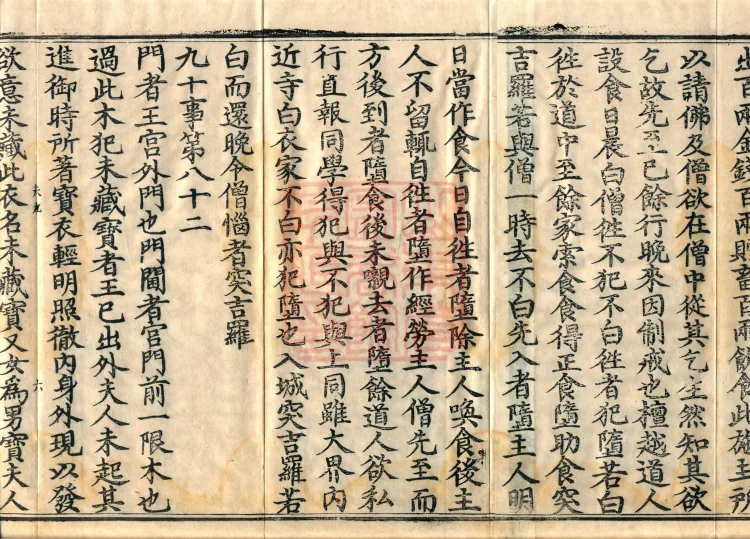 出百兩金錢百兩財畜百兩飲食此施主所
以請佛及僧欲在僧中從其乞生然知其欲
乞故先至已餘行晚來因制戒也檀越道人
設食日晨白僧徃不犯不白徃者犯墮若白
徃於道中至餘家索食食得正食墮助食突
吉羅若與僧一時去不白先入者墮主人明
日當作食今日自徃者墮除主人喚食後主
人不留輒自徃者墮作經勞主人僧先至而
方後到者墮食後未嚫去者墮餘道人欲私
行直報同學得犯與不犯與上同雖大界內
近寺白衣家不白亦犯墮也入城突吉羅若
白而還晚令僧惱者突吉羅
九十事第八十二
門者王宮外門也門閫者宮門前一限木也
過此木犯未藏寶者王已出外夫人未起其
進御時所著寶衣輕明照徹內身外現以發
欲意未藏此衣名未藏寶又女為男寶夫人
六